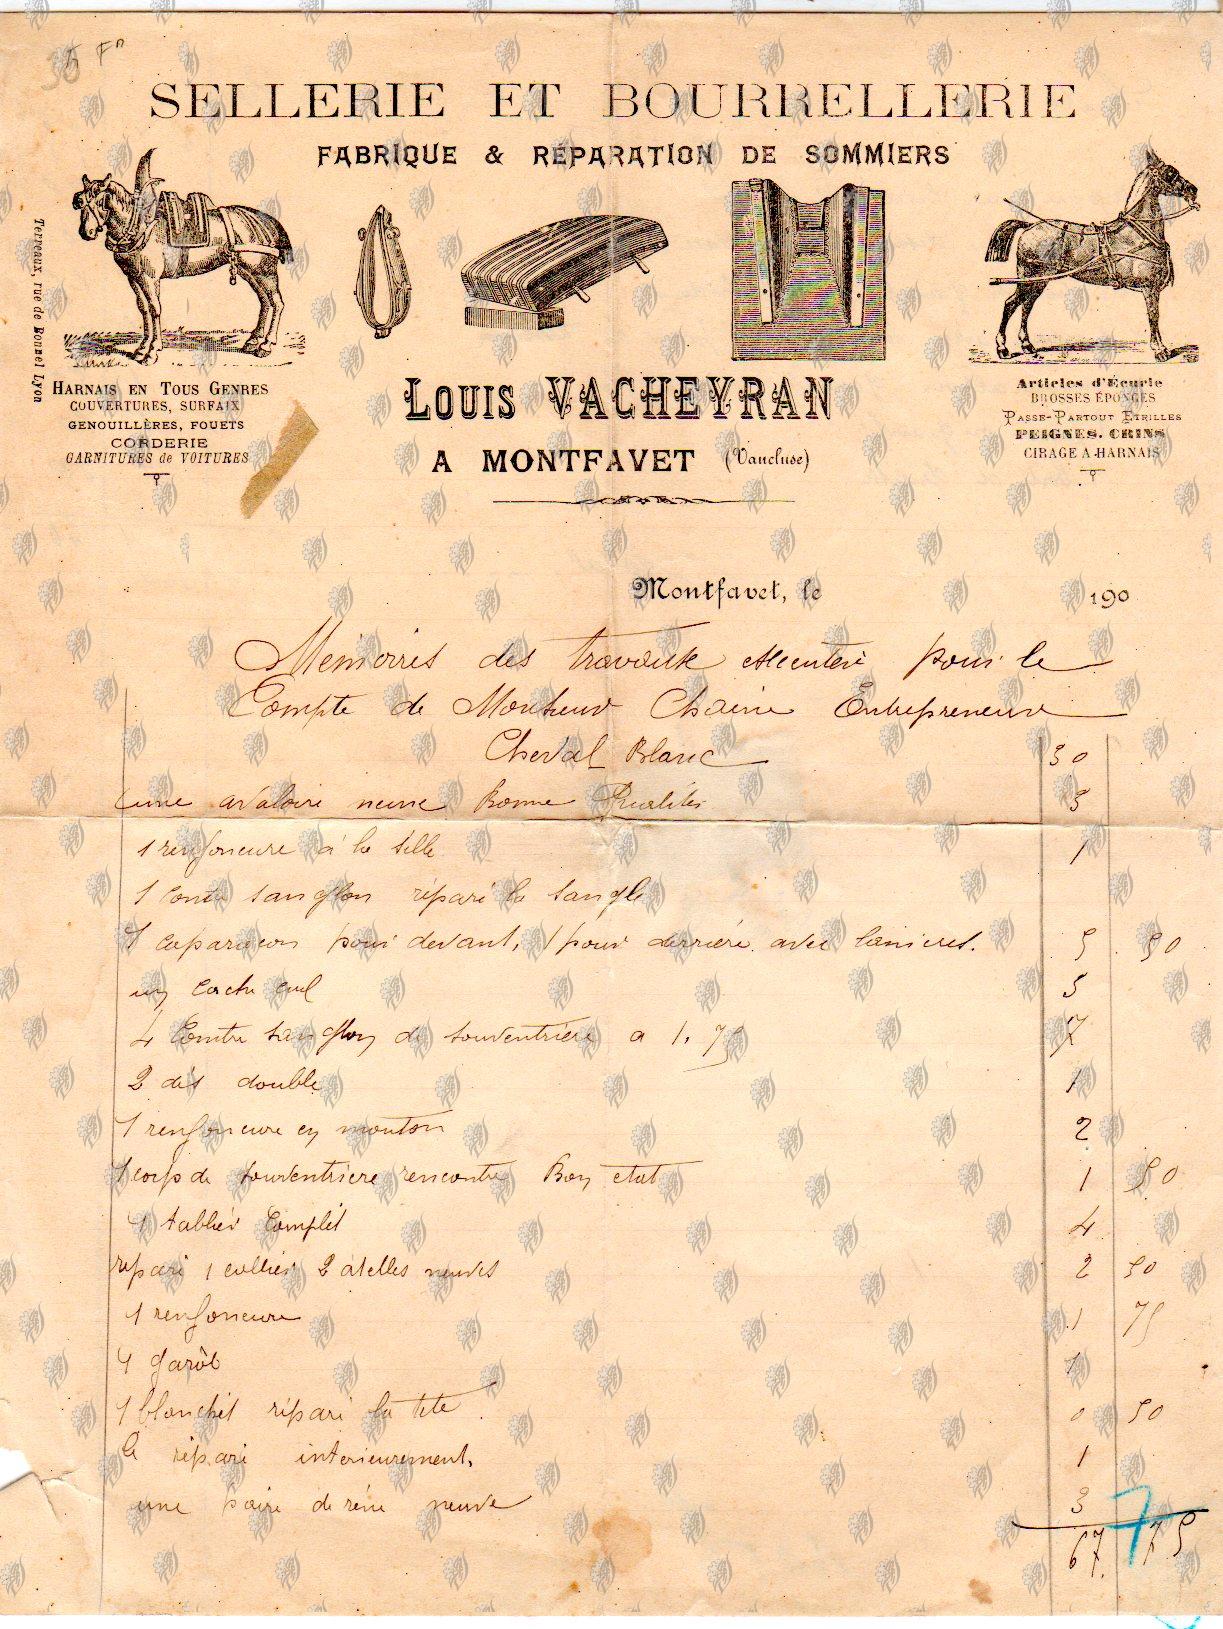 5 Fn
SELLERIE ET BOURRELLERIE
FABRIQUE & RÉPARATION DE SOMMIERS
Terreaux, rue de Bonnel Lyon
HARNAIS EN TOUS GENRES
COUVERTURES, SURFAIX
GENOUILLÈRES, FOUETS
CORDERIE
GARNITURES de VOITURES
LOUIS VACHEYRAN
A MONTFAVET (Vaucluse)
Articles d'Écurie
BROSSES ÉPONGES
PASSE-PARTOUT ETRILLES
PEIGNES. CRINS
CIRAGE A HARNAIS
Montfavet, le 190
Mémoires des travaux pour le
Compte de Monsieur Chaine Entrepreneur
Cheval Blanc 30
une avaloire neuve Bonne Qualités 3
1 renfonceure à la selle 1
1 Contre sanglon réparé la sangle
1 caparaçon pour devant, 1 pour derrière avec lanières. 5 50
un cache cul 5
4 Contre sanglon de souventrière a 1.75 7
2 dés double 1
1 renfonceure en mouton 2
1 corps de souventrière rencontre Bon état 1 50
1 tablier Complet 4
réparé 1 collier 2 atelles neuves 2 50
1 renfonceure 1 75
1 garôt 1
1 blanchet réparé la tete 0 50
le réparé interieurement, 1
une paire de rêne neuve 3
67. 75
7